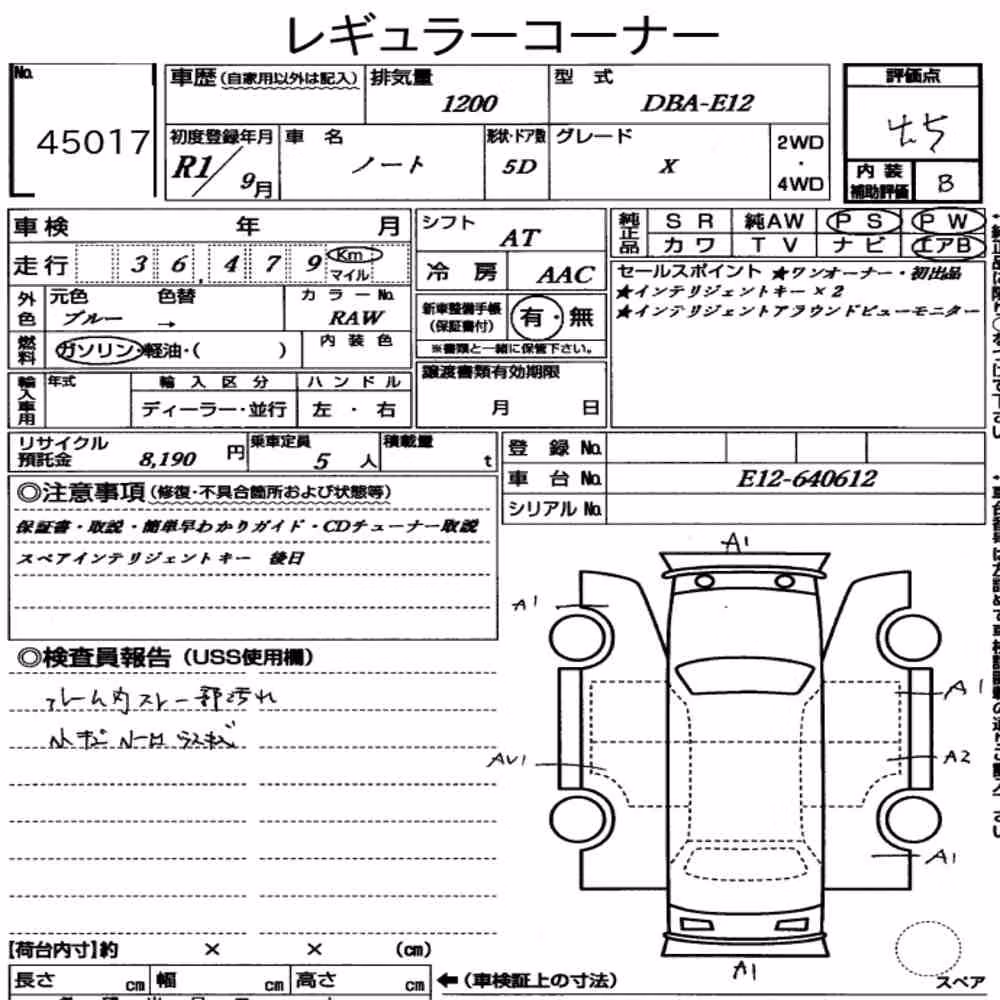 レギュラーコーナー
No.
45017
車歴(自家用以外は記入)
排気量
1200
型 式
DBA-E12
初度登録年月
R1/9月
車 名
ノート
形状・ドア数
5D
グレード
X
2WD
・
4WD
評価点
4.5
内装
補助評価
B
車検 年 月
走行 36,479 Km マイル
外色
元色
ブルー
色替
→
カラーNo.
RAW
燃料
ガソリン・軽油・( )
内装色
輸入車用
年式
輸入区分
ディーラー・並行
ハンドル
左・右
シフト
AT
冷房
AAC
新車整備手帳
(保証書付)
有・無
※書類と一緒に保管下さい。
譲渡書類有効期限
月 日
純正品
SR 純AW PS PW
カワ TV ナビ エアB
セールスポイント ★ワンオーナー・初出品
★インテリジェントキー×2
★インテリジェントアラウンドビューモニター
リサイクル
預託金
8,190 円
乗車定員
5 人
積載量
t
登録No.
車台No.
E12-640612
シリアルNo.
◎注意事項(修復・不具合箇所および状態等)
保証書・取説・簡単早わかりガイド・CDチューナー取説
スペアインテリジェントキー 後日
◎検査員報告(USS使用欄)
A1
A1
A1
AV1
A2
A1
A1
[荷台内寸]約 × × (cm)
長さ cm 幅 cm 高さ cm
←(車検証上の寸法)
スペア